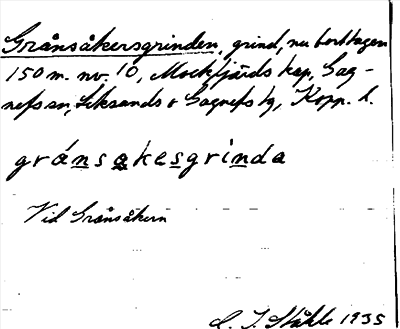 Grånsåkersgrinden, grind, nu borttagen
150 m. nv. 10, Mockfjärds kap, Gag-
nefs sn, Leksands o Gagnefs tg, Kopp. l.
grånsakesgrinda
Vid Grånsåkern
C. I. Ståhle 1935